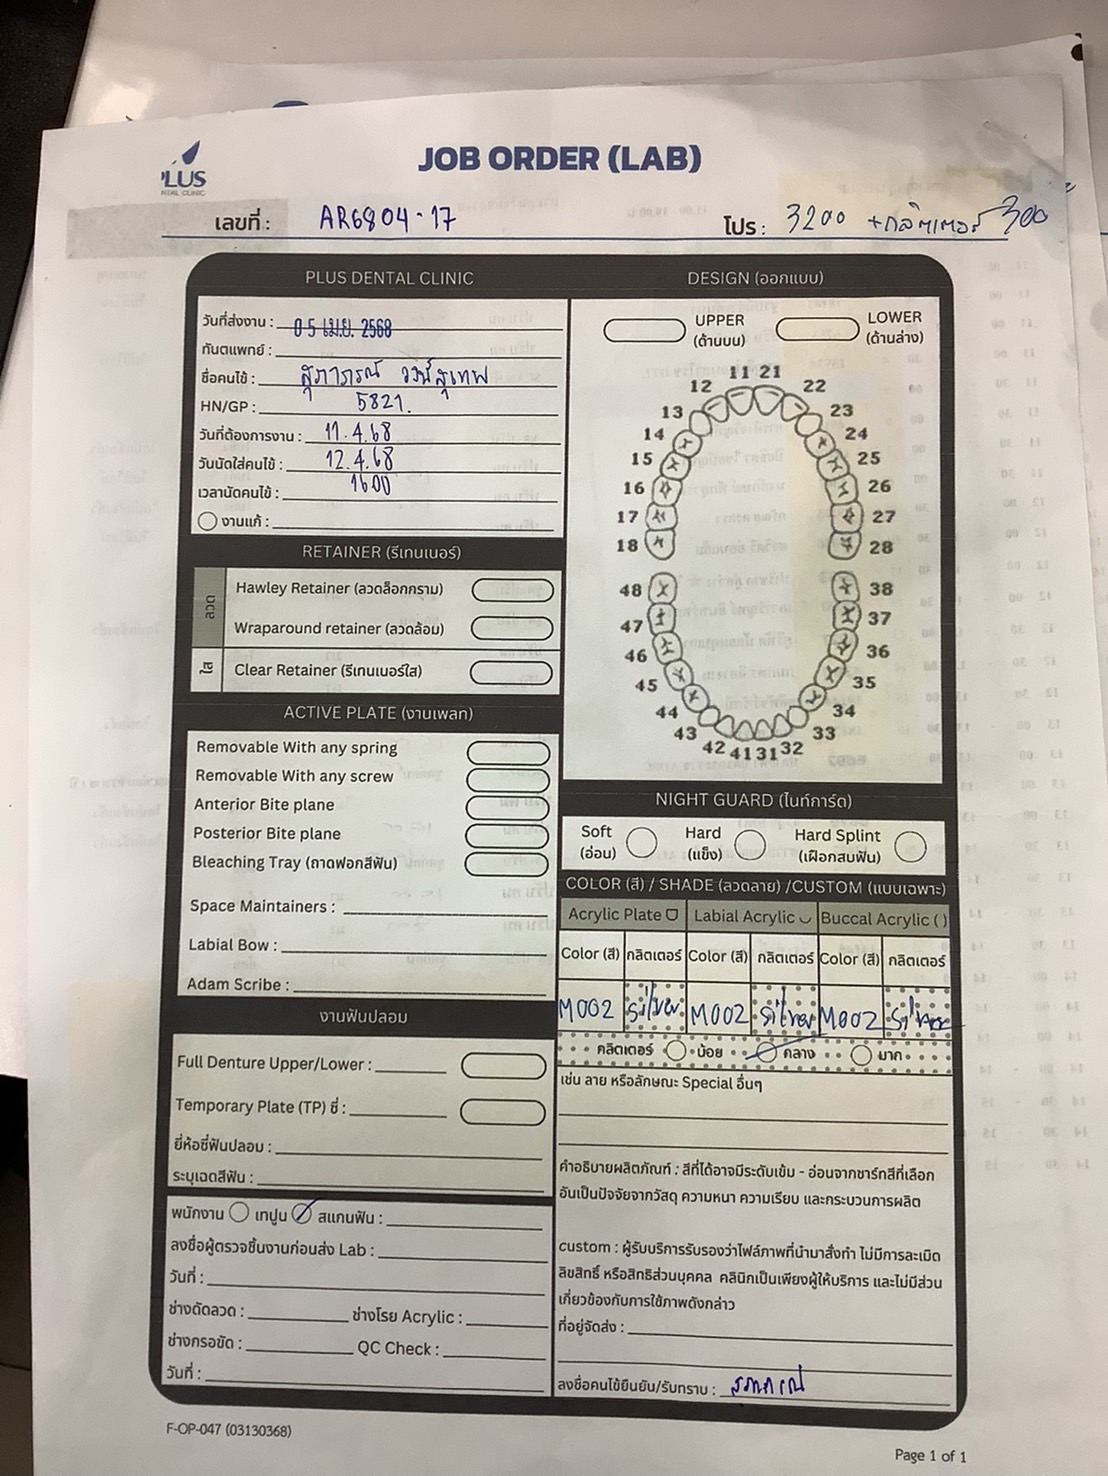 PLUS
DENTAL CLINIC
JOB ORDER (LAB)
เลขที่ : AR6804-17
โปร : 3200 +กลิตเตอร์ 300
PLUS DENTAL CLINIC
วันที่ส่งงาน : 05 เม.ย. 2568
ทันตแพทย์ :
ชื่อคนไข้ : สุภาภรณ์ วงษ์สุเทพ
HN/GP : 5821.
วันที่ต้องการงาน : 11.4.68
วันนัดใส่คนไข้ : 12.4.68
เวลานัดคนไข้ : 1600
งานแก้ :
RETAINER (รีเทนเนอร์)
ลวด
Hawley Retainer (ลวดล็อกกราม)
Wraparound retainer (ลวดล้อม)
ใส
Clear Retainer (รีเทนเนอร์ใส)
ACTIVE PLATE (งานเพลท)
Removable With any spring
Removable With any screw
Anterior Bite plane
Posterior Bite plane
Bleaching Tray (ถาดฟอกสีฟัน)
Space Maintainers :
Labial Bow :
Adam Scribe :
งานฟันปลอม
Full Denture Upper/Lower :
Temporary Plate (TP) ซี่ :
ยี่ห้อซี่ฟันปลอม :
ระบุเฉดสีฟัน :
พนักงาน เทปูน สแกนฟัน :
ลงชื่อผู้ตรวจชิ้นงานก่อนส่ง Lab :
วันที่ :
ช่างดัดลวด : ช่างโรย Acrylic :
ช่างกรอขัด : QC Check :
วันที่ :
DESIGN (ออกแบบ)
UPPER (ด้านบน)
LOWER (ด้านล่าง)
11 21
12 22
13 23
14 24
15 25
16 26
17 27
18 28
48 38
47 37
46 36
45 35
44 34
43 33
42 41 31 32
NIGHT GUARD (ไนท์การ์ด)
Soft (อ่อน)
Hard (แข็ง)
Hard Splint (เฝือกสบฟัน)
COLOR (สี) / SHADE (ลวดลาย) /CUSTOM (แบบเฉพาะ)
Acrylic Plate Labial Acrylic Buccal Acrylic ( )
Color (สี) กลิตเตอร์ Color (สี) กลิตเตอร์ Color (สี) กลิตเตอร์
M002 silver M002 silver M002 silver
คลิตเตอร์ น้อย กลาง มาก
เช่น ลาย หรือลักษณะ Special อื่นๆ
คำอธิบายผลิตภัณฑ์ : สีที่ได้อาจมีระดับเข้ม - อ่อนจากชาร์ทสีที่เลือก
อันเป็นปัจจัยจากวัสดุ ความหนา ความเรียบ และกระบวนการผลิต
custom : ผู้รับบริการรับรองว่าไฟล์ภาพที่นำมาสั่งทำ ไม่มีการละเมิด
ลิขสิทธิ์ หรือสิทธิส่วนบุคคล คลินิกเป็นเพียงผู้ให้บริการ และไม่มีส่วน
เกี่ยวข้องกับการใช้ภาพดังกล่าว
ที่อยู่จัดส่ง :
ลงชื่อคนไข้ยืนยัน/รับทราบ :
F-OP-047 (03130368)
Page 1 of 1